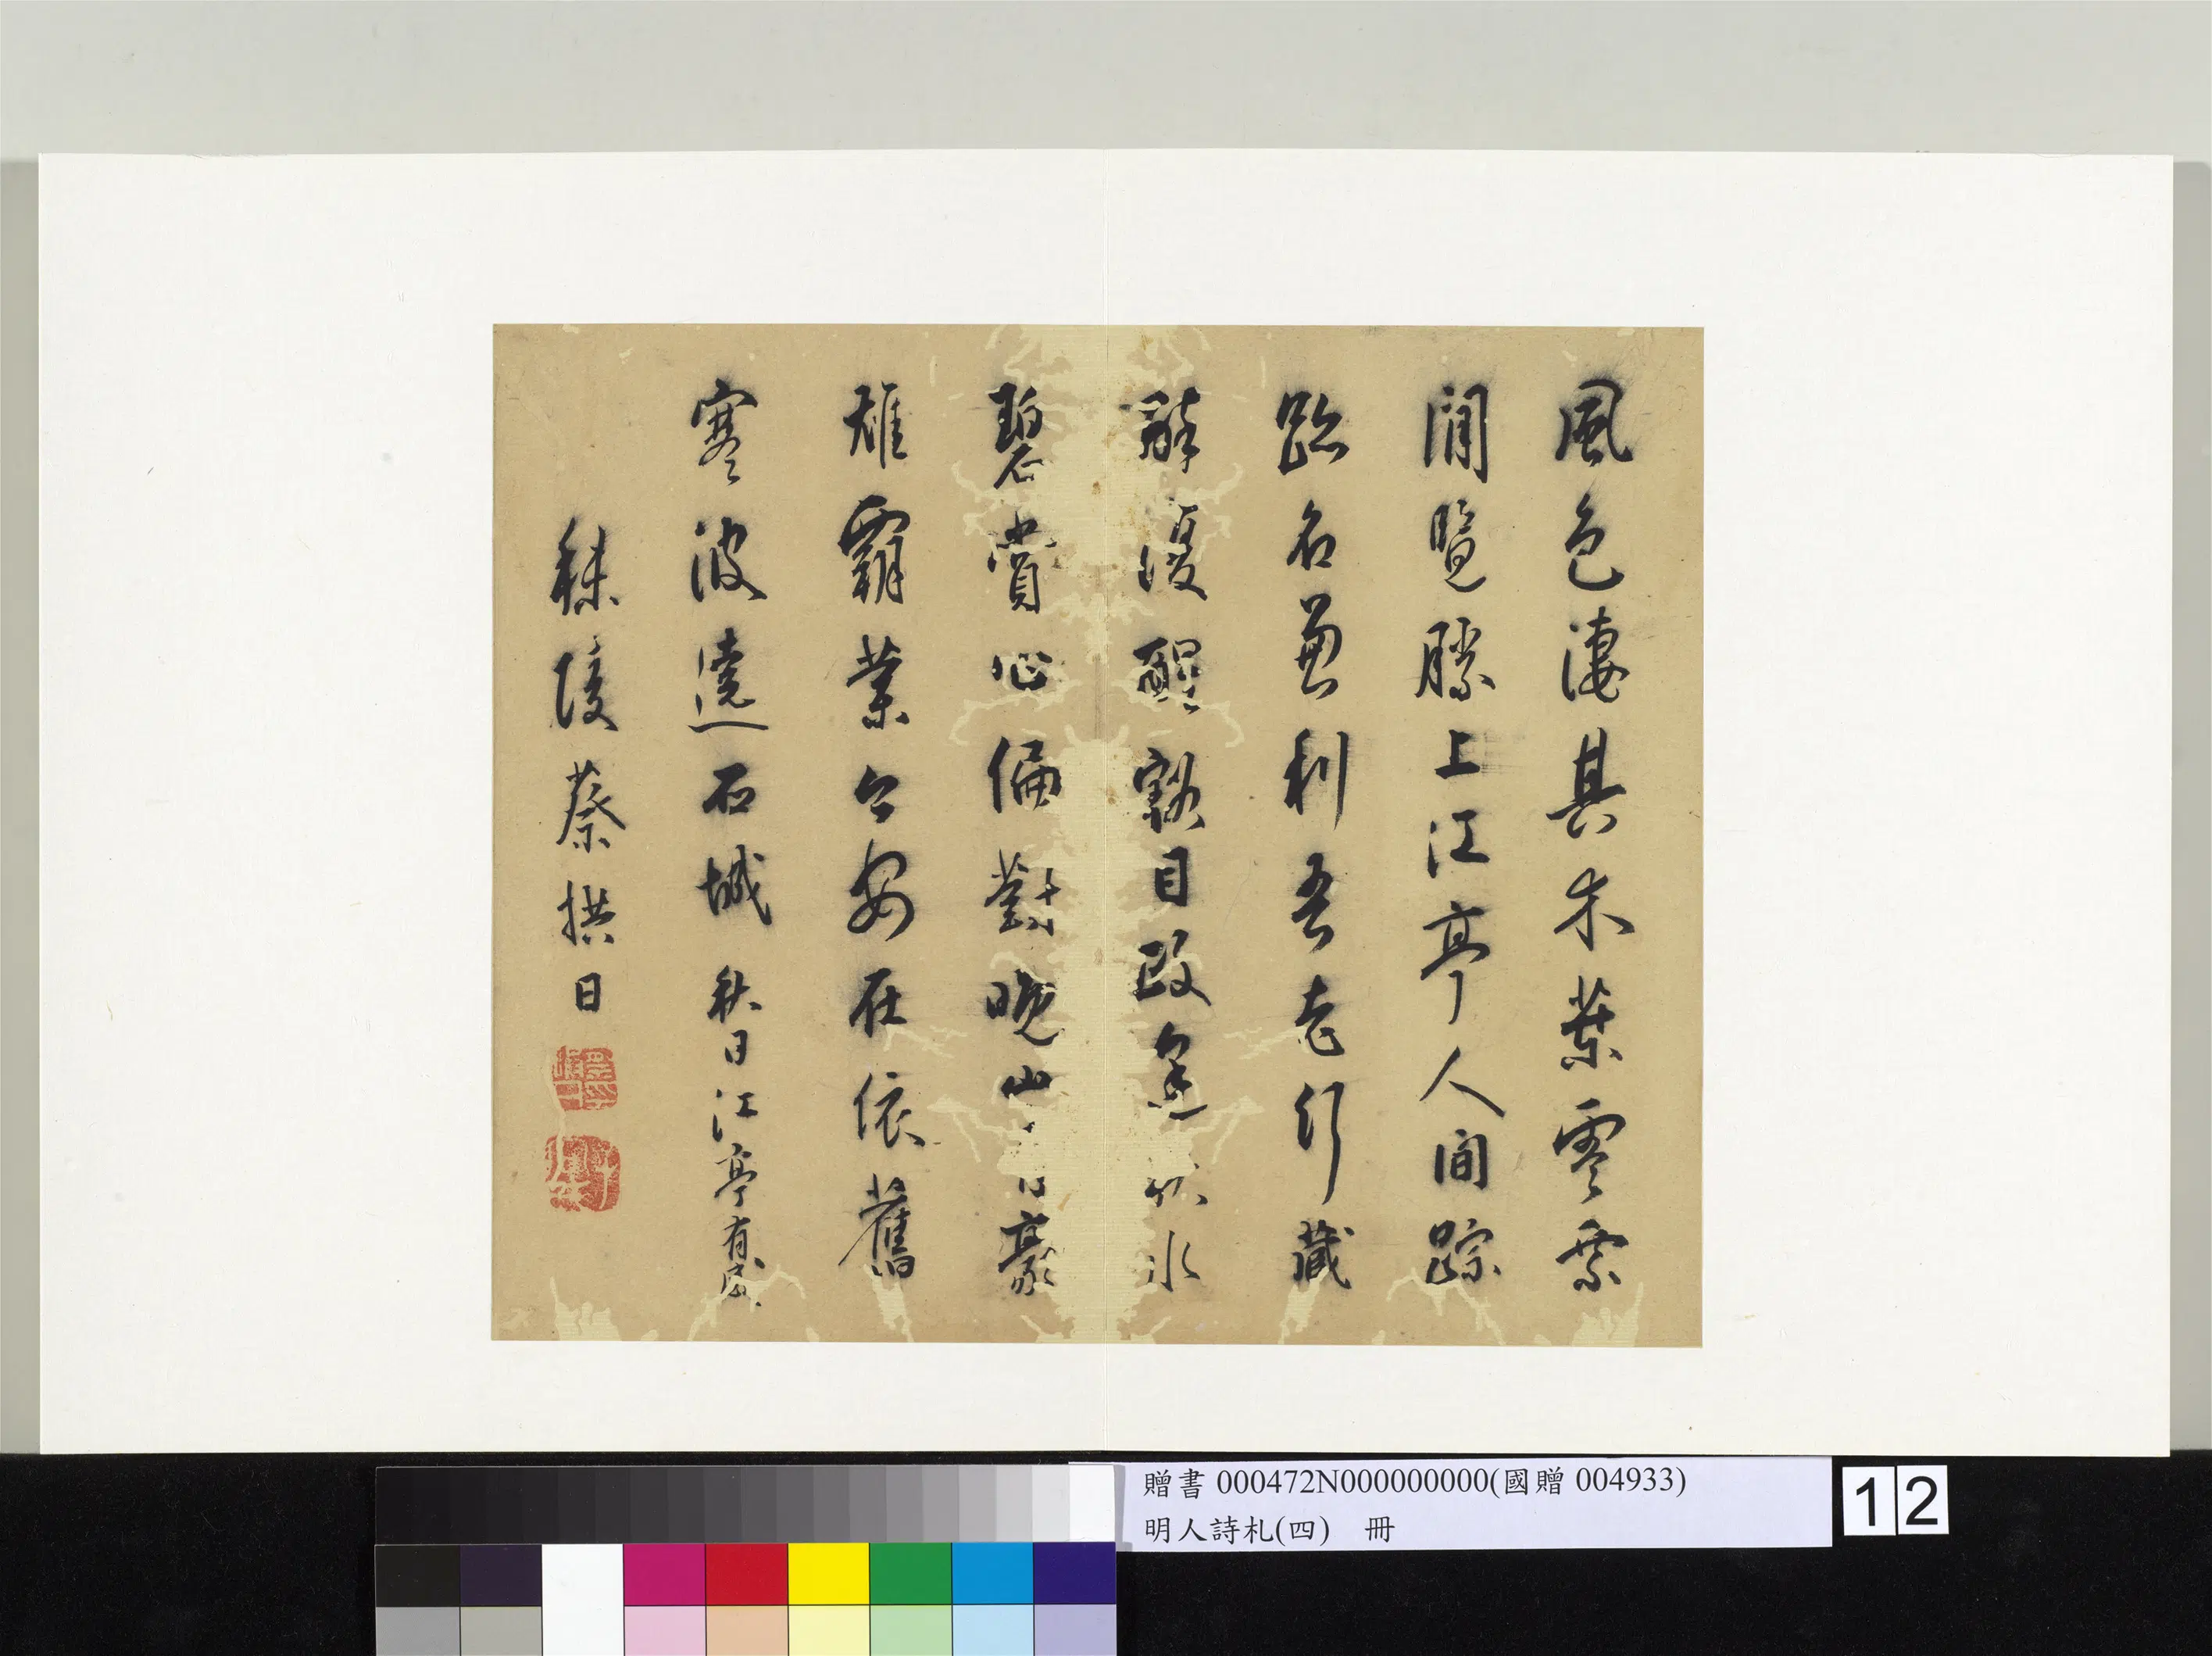 風色淒其木葉零乘
閒覽勝上江亭人間踪
跡名兼利吾老行藏
醉復醒豁目政逢秋水
碧賞心偏對晚山青豪
雄霸業今安在依舊
寒波遶石城 秋日江亭有感
秣陵蔡拱日
贈書 000472N000000000(國贈 004933)
明人詩札(四) 冊
12